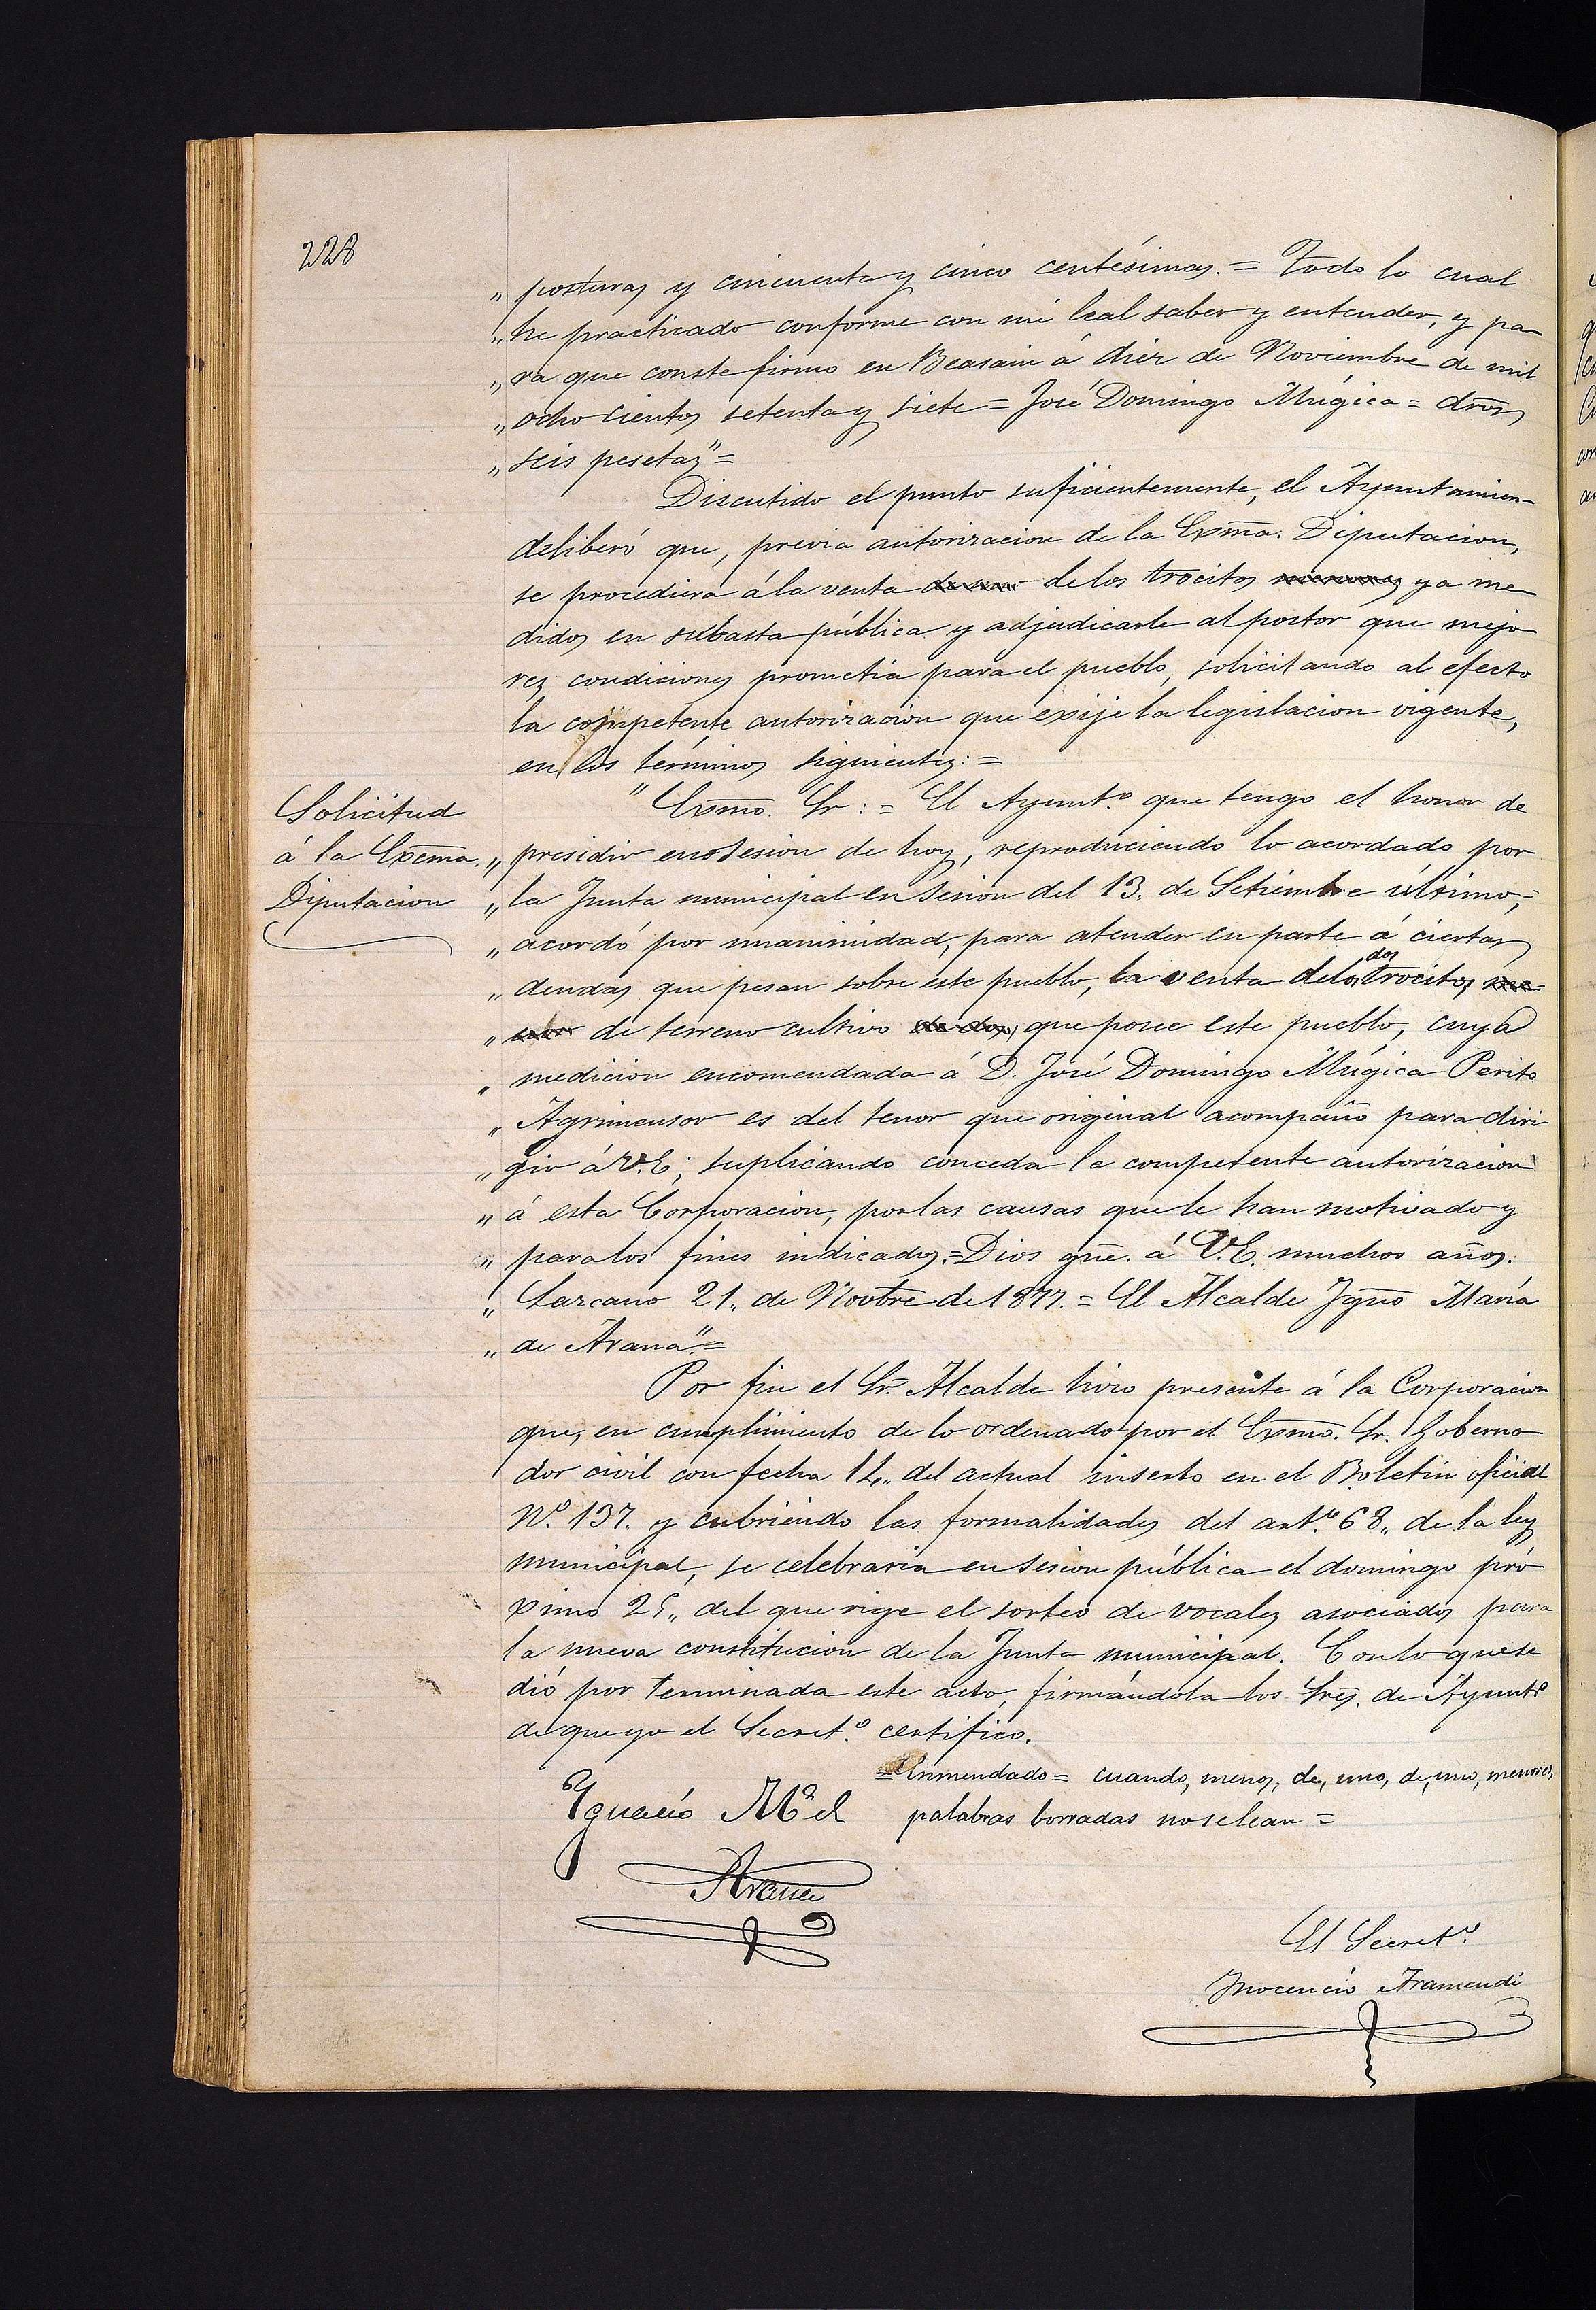 228
„ posturas y cincuenta y cinco centésimas. = Todo lo cual
„ he practicado conforme con mi leal saber y entender, y pa
„ ra que conste firmo en Beasain á diez de Noviembre de mil
„ ochocientos setenta y siete = José Domingo Múgica = dros
„ seis pesetas" =
Discutido el punto suficientemente, el Ayuntamien-
deliberó que, previa autorizacion de la Exma. Diputacion,
se procediera á la venta de los trocitos ya me
didos en subasta pública y adjudicarle al postor que mejo
res condiciones prometia para el pueblo, solicitando al efecto
la competente autorizacion que exije la legislacion vigente,
en los términos siguientes: =
Solicitud
á la Excma.
Diputacion
" Exmo. Sr: = El Ayunt.º que tengo el honor de
„ presidir en sesion de hoy, reproduciendo lo acordado por
„ la Junta municipal en sesion del 13. de Setiembre último,=
„ acordó por unanimidad, para atender en parte á ciertas
„ deudas que pesan sobre este pueblo, la venta delos dos trocitos
„ de terreno cultivo que posee este pueblo, cuya
„ medicion encomendada á D. José Domingo Múgica Perito
„ Agrimensor es del tenor que original acompaño para diri
„ gir á V.E; suplicando conceda la competente autorizacion
„ á esta Corporacion, por las causas que le han motivado y
„ para los fines indicados. = Dios gue. á V.E. muchos años.
„ Lazcano 21„ de Novbre de 1877. = El Alcalde Ygno Maria
„ de Arana". =
Por fin el Sr. Alcalde hizo presente á la Corporacion
que, en cumplimiento de lo ordenado por el Exmo. Sr. Goberna
dor civil con fecha 14„ del actual inserto en el Boletin oficial
Nº. 137. y cubriendo las formalidades del art.º 68„ de la ley
municipal, se celebraria en sesion pública el domingo pró
ximo 25„ del que rige el sorteo de vocales asociados para
la nueva constitucion de la Junta municipal. Con lo que se
dió por terminada este acto, firmándola los Sres. de Ayuntº
de que yo el Secret.º certifico.
= Enmendado = cuando, menos, de, uno, de, uno, menores,
palabras borradas no se lean =
Ygnacio Mª de
Arana
El Secret.º
Inocencio Aramendi